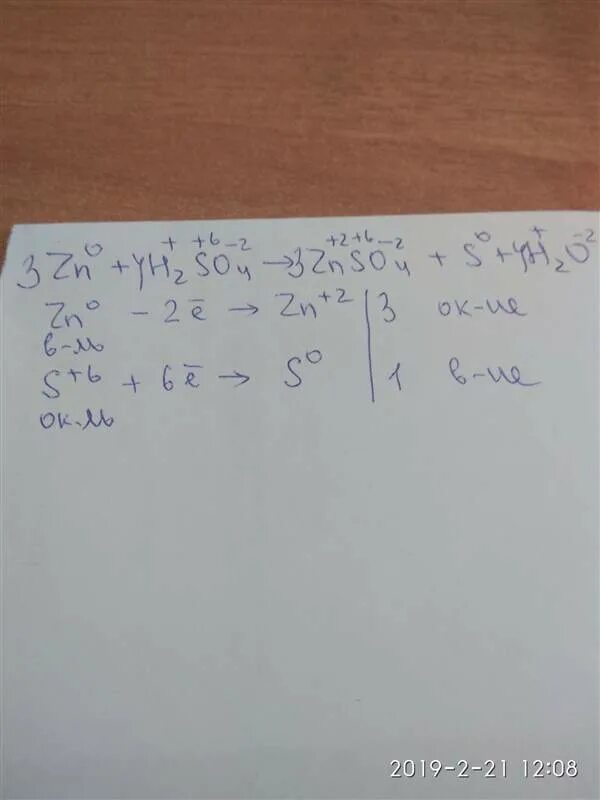 3Zn⁰ + 4H₂⁺S⁺⁶O₄⁻² → 3Zn⁺²S⁺⁶O₄⁻² + S⁰ + 4H₂⁺O⁻²
Zn⁰ - 2ē → Zn⁺² | 3 ок-ие
в-ль
S⁺⁶ + 6ē → S⁰ | 1 в-ие
ок-ль
2019-2-21 12:08